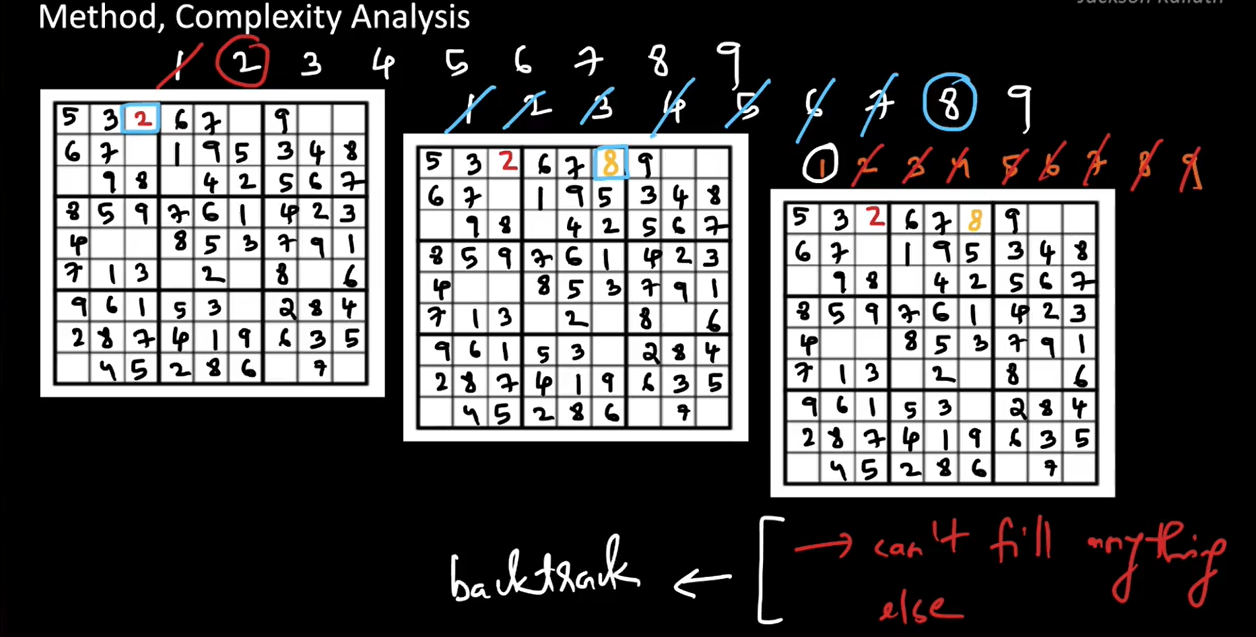 Jackson Kailath
Method, Complexity Analysis
1 2 3 4 5 6 7 8 9
5 3 2 6 7 9
6 7 1 9 5 3 4 8
9 8 4 2 5 6 7
8 5 9 7 6 1 4 2 3
4 8 5 3 7 9 1
7 1 3 2 8 6
9 6 1 5 3 2 8 4
2 8 7 4 1 9 6 3 5
4 5 2 8 6 7
1 2 3 4 5 6 7 8 9
5 3 2 6 7 8 9
6 7 1 9 5 3 4 8
9 8 4 2 5 6 7
8 5 9 7 6 1 4 2 3
4 8 5 3 7 9 1
7 1 3 2 8 6
9 6 1 5 3 2 8 4
2 8 7 4 1 9 6 3 5
4 5 2 8 6 7
1 2 3 4 5 6 7 8 9
5 3 2 6 7 8 9
6 7 1 9 5 3 4 8
9 8 4 2 5 6 7
8 5 9 7 6 1 4 2 3
4 8 5 3 7 9 1
7 1 3 2 8 6
9 6 1 5 3 2 8 4
2 8 7 4 1 9 6 3 5
4 5 2 8 6 7
backtrack ← [ → can't fill anything
else